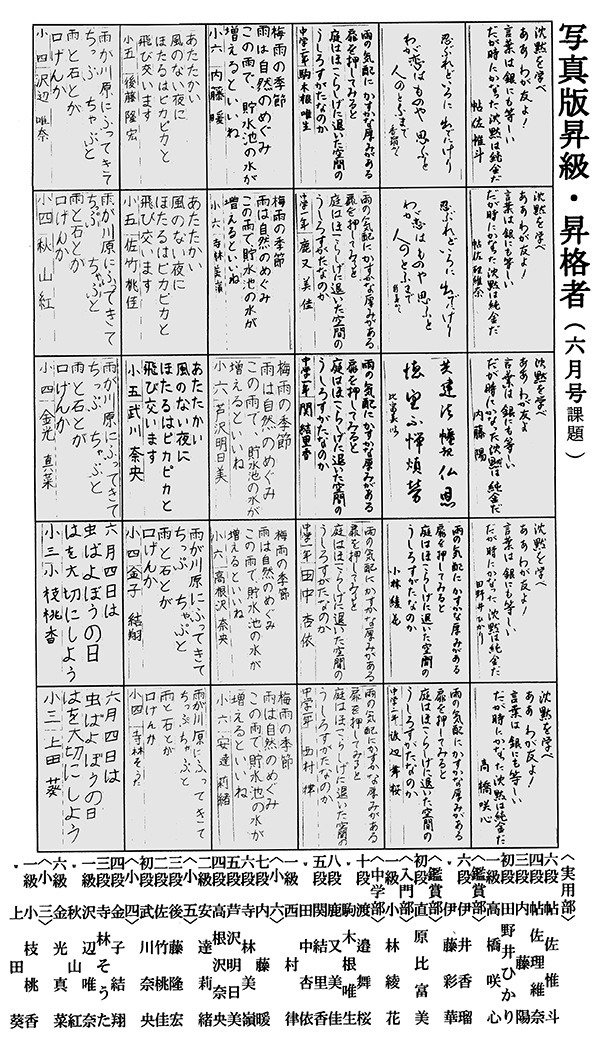 写真版昇級・昇格者（六月号課題）
沈黙を学べ
ああ わが友よ！
言葉は銀にも等しい
だが時にかなった沈黙は純金だ
帖佐惟斗
忍ぶれど いろに出でけり
わが恋は ものや 思ふと
人のとふまで
雨の気配に かすかな厚みがある
扉を押してみると
庭はほこらしげに退いた空間の
うしろすがたなのか
中学二年 駒木根唯生
梅雨の季節
雨は自然のめぐみ
この雨で、貯水池の水が
増えるといいね
小六 内藤暖
あたたかい
風のない夜に
ほたるはピカピカと
飛び交います
小五 後藤隆宏
雨が川原にふってきて
ちっぷ ちゃぷと
雨と石とが
口げんか
小四 沢辺唯奈
沈黙を学べ
ああ わが友よ！
言葉は銀にも等しい
だが時にかなった沈黙は純金だ
帖佐理維奈
忍ぶれど いろに 出でけり
わが恋は ものや 思ふと
人のとふまで
雨の気配に かすかな厚みがある
扉を押してみると
庭はほこらしげに退いた空間の
うしろすがたなのか
鹿又美佳
梅雨の季節
雨は自然のめぐみ
この雨で、貯水池の水が
増えるといいね
小六 寺林美嶺
あたたかい
風のない夜に
ほたるはピカピカと
飛び交います
小五 佐竹桃佳
雨が川原にふってきて
ちっぷ ちゃぷと
雨と石とが
口げんか
小四 秋山紅
沈黙を学べ
ああ わが友よ
言葉は銀にも等しい
だが時にかなった沈黙は純金だ
内藤陽
雨の気配に かすかな厚みがある
扉を押してみると
庭はほこらしげに退いた空間の
うしろすがたなのか
関結里香
梅雨の季節
雨は自然のめぐみ
この雨で、貯水池の水が
増えるといいね
小六 芦沢明日美
あたたかい
風のない夜に
ほたるはピカピカと
飛び交います
小五 武川奈央
雨が川原にふってきて
ちっぷ ちゃぷと
雨と石とが
口げんか
小四 金光真菜
沈黙を学べ
ああ わが友よ！
言葉は銀にも等しい
だが時にかなった沈黙は純金だ
田野井ひかり
雨の気配に かすかな厚みがある
扉を押してみると
庭はほこらしげに退いた空間の
うしろすがたなのか
小林綾花
雨の気配に かすかな厚みがある
扉を押してみると
庭はほこらしげに退いた空間の
うしろすがたなのか
田中杏依
梅雨の季節
雨は自然のめぐみ
この雨で、貯水池の水が
増えるといいね
小六 高根沢奈央
雨が川原にふってきて
ちっぷ ちゃぷと
雨と石とが
口げんか
小四 金子結翔
六月四日は
虫ばよぼうの日
はを大切にしよう
小三 小枝桃香
沈黙を学べ
ああ わが友よ！
言葉は銀にも等しい
だが時にかなった沈黙は純金だ
高橋咲心
雨の気配に かすかな厚みがある
扉を押してみると
庭はほこらしげに退いた空間の
うしろすがたなのか
渡辺舞桜
雨の気配に かすかな厚みがある
扉を押してみると
庭はほこらしげに退いた空間の
うしろすがたなのか
西村律
梅雨の季節
雨は自然のめぐみ
この雨で、貯水池の水が
増えるといいね
小六 安達莉緒
雨が川原にふってきて
ちっぷちゃぷと
雨と石とが
口げんか
小四 寺林そうた
六月四日は
虫ばよぼうの日
はを大切にしよう
小三 上田葵
〈実用部〉
六段 帖佐惟斗
四段 帖佐理維奈
二段 内藤陽
初段 田野井ひかり
一級 高橋咲心
〈鑑賞部〉
・六段 伊井香瑠
伊藤彩華
〈鑑賞部〉
初段 直原比富美
〈入門部〉
一級 小林綾花
〈中学部〉
・十段 渡邉舞桜
・ 駒木根唯生
八段 鹿又美佳
五段 関結里香
・ 田中杏依
一級 西村律
〈小六〉
七段 内藤暖
六段 寺林美嶺
五段 芦沢明日美
四段 高根沢奈央
二級 安達莉緒
〈小五〉
三段 後藤隆宏
二段 佐竹桃佳
初段 武川奈央
〈小四〉
四段 金子結翔
三段 寺林そうた
一級 沢辺唯奈
秋山紅
六級 金光真菜
〈小三〉
一級 小枝桃香
・ 上田葵